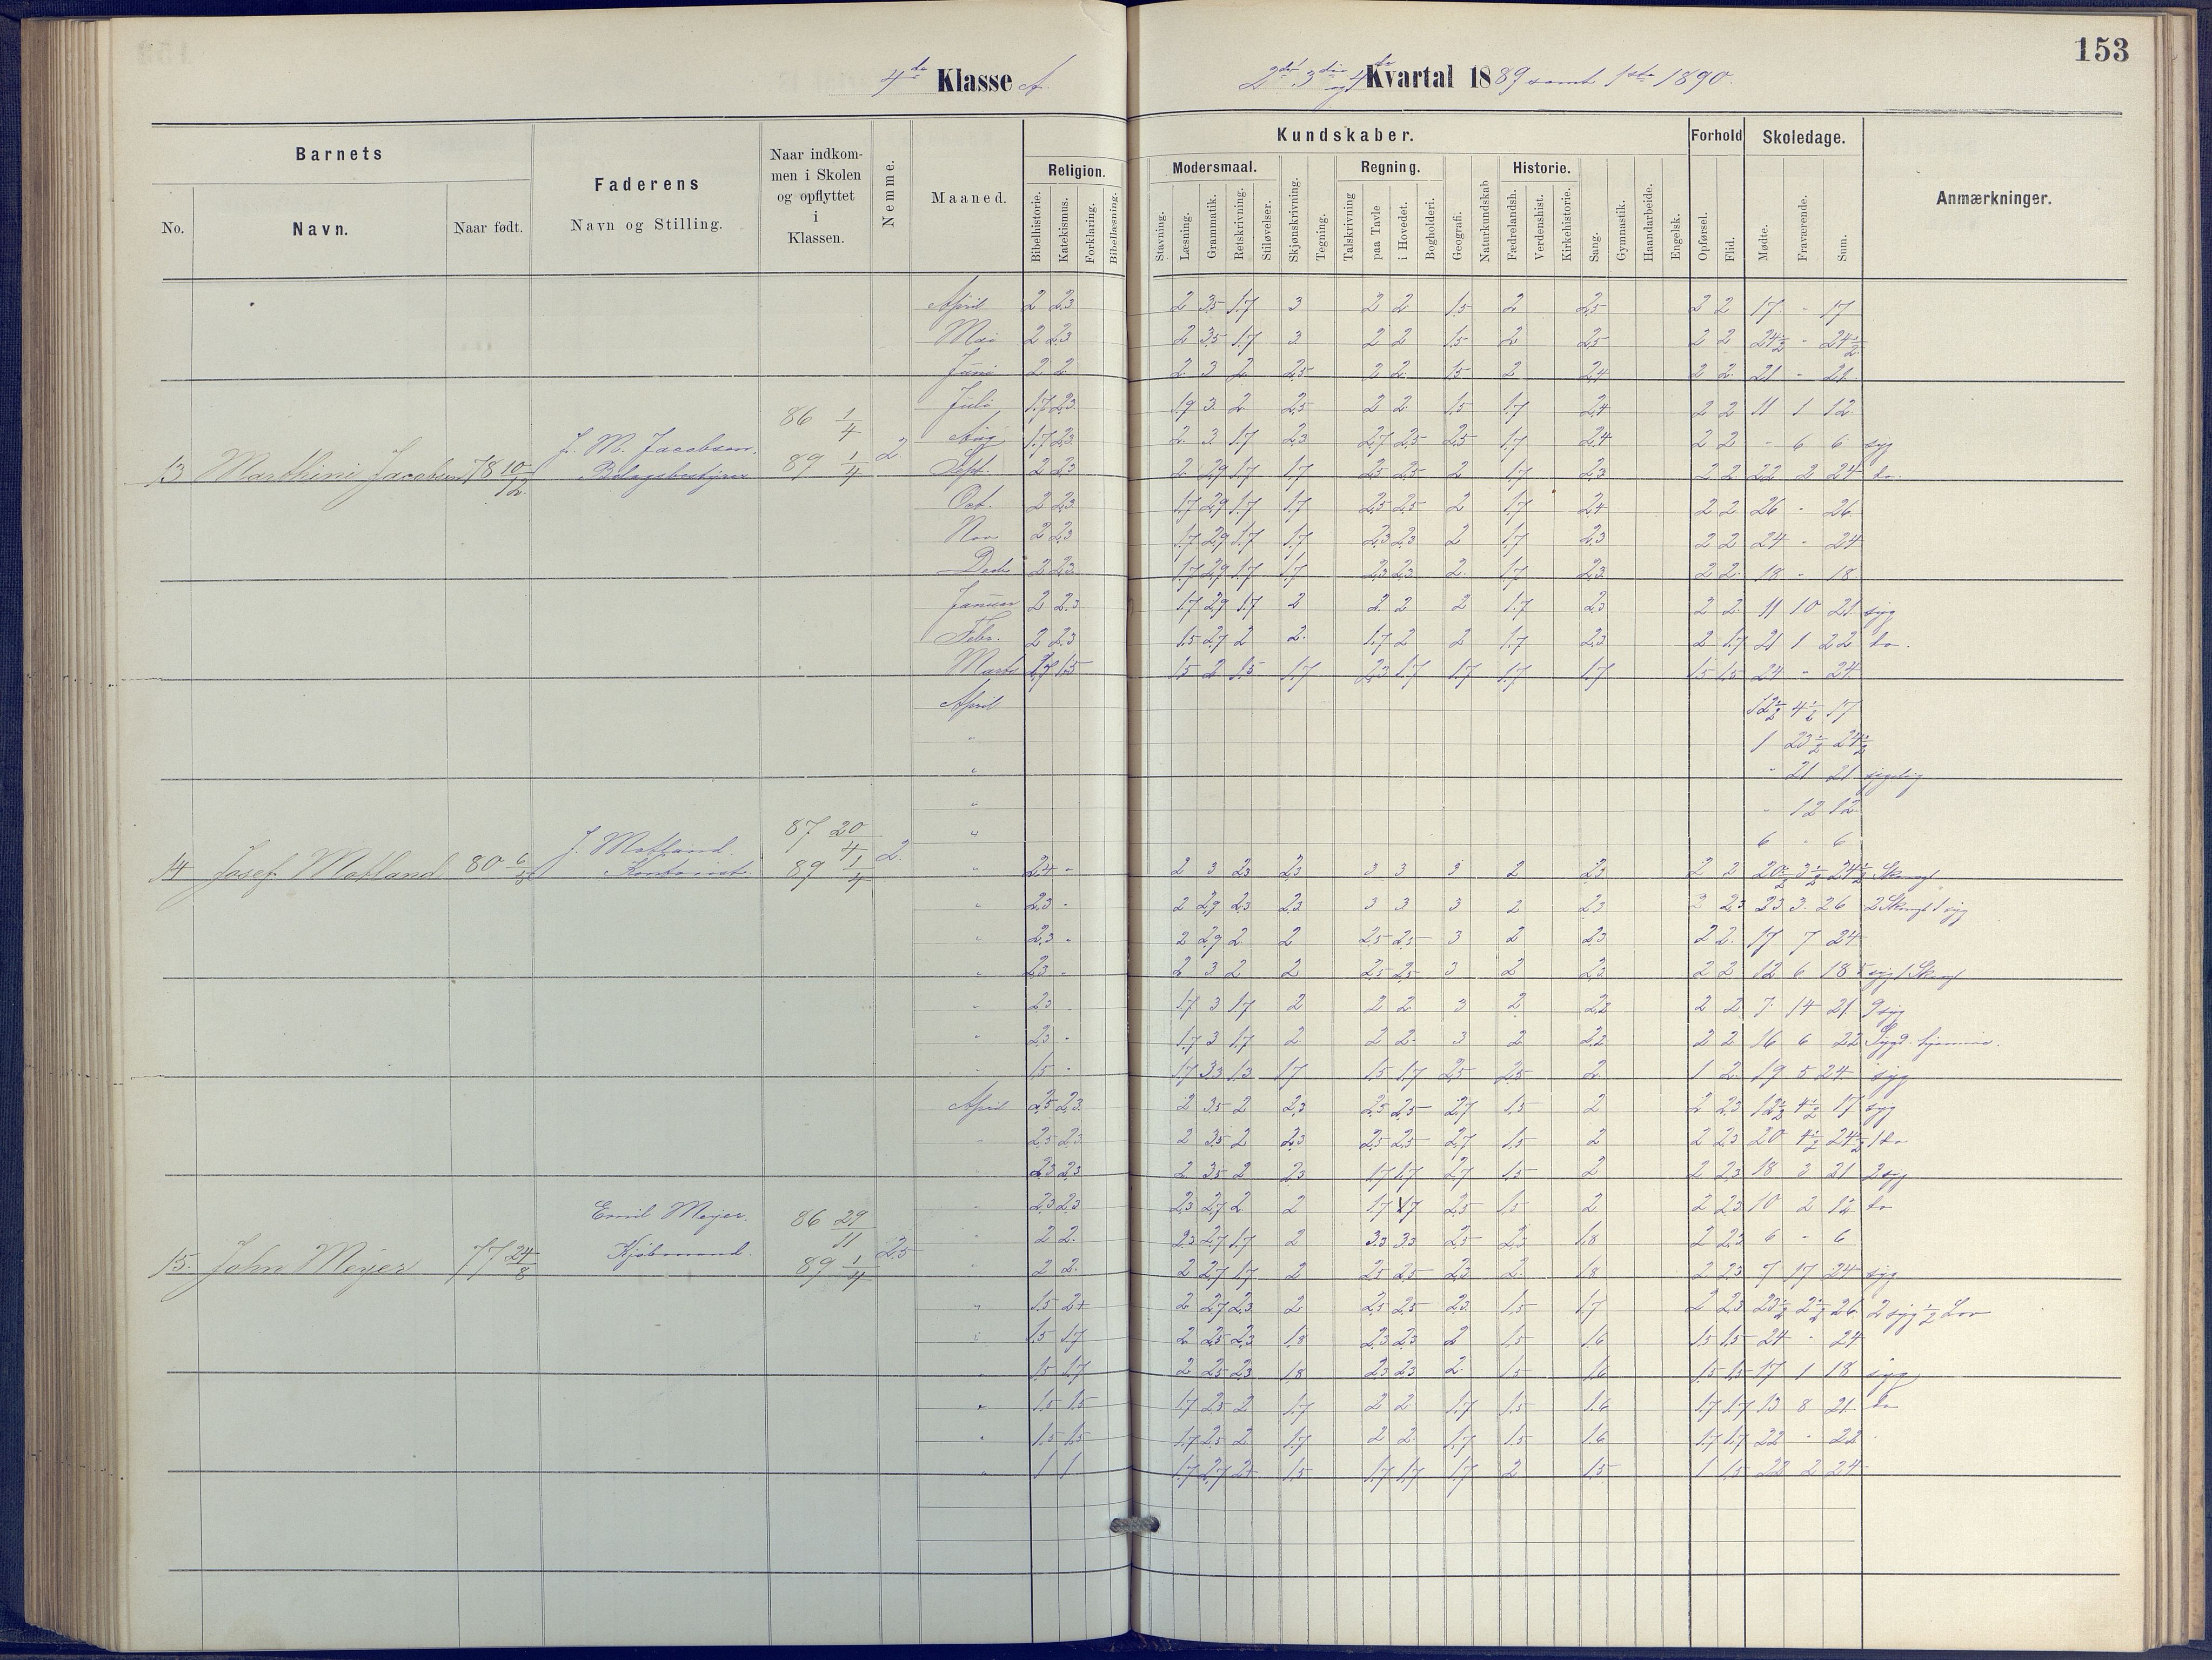 153
4de Klasse A.
2det 3die og 4de Kvartal 1889 samt 1ste 1890.
Barnets
Faderens
Navn og Stilling.
Naar indkom-
men i Skolen
og opflyttet
i
Klassen.
Nemme.
Maaned.
Kundskaber.
Forhold
Skoledage.
Anmærkninger.
No.
Navn.
Naar født.
Religion.
Modersmaal.
Regning.
Historie.
Bibelhistorie.
Katekismus.
Forklaring.
Bibellæsning.
Stavning.
Læsning.
Grammatik.
Retskrivning.
Stiløvelser.
Skjønskrivning.
Tegning.
Talskrivning
paa Tavle
i Hovedet.
Bogholderi.
Geografi.
Naturkundskab
Fædrelandsh.
Verdenshist.
Kirkehistorie.
Sang.
Gymnastik.
Haandarbeide.
Engelsk.
Opførsel.
Flid.
Mødte.
Fraværende.
Sum.
April 2 2,3 2 3,5 1,7 3 2 2 1,5 2 2,5 2 2 17 - 17
Mai 2 2,3 2 3,5 1,7 3 2 2 1,5 2 2,5 2 2 24½ - 24½
Juni 2 2 2 3 2 2,5 2 2 1,5 2 2,4 2 2 21 - 21
Juli 1,7 2,3 1,9 3 2 2,5 2 2 1,5 1,7 2,4 2 2 11 1 12
Aug. 1,7 2,3 2 3 1,7 2,3 2,7 2,5 2,5 1,7 2,4 2 2 - 6 6 syg
13 Marthini Jacobsen 78 10/12 J. M. Jacobsen. 86 1/4 89 1/4 2.
Sept. 2 2,3 2 2,9 1,7 1,7 2,5 2,5 2 1,7 2,3 2 2 22 2 24 do.
Oct. 2 2,3 1,7 2,9 1,7 1,7 2,5 2,5 2 1,7 2,4 2 2 26 - 26
Nov 2 2,3 1,7 2,9 1,7 1,7 2,3 2,3 2 1,7 2,3 2 2 24 - 24
Decbr 2 2,3 1,7 2,9 1,7 1,7 2,3 2,3 2 1,7 2,3 2 2 18 - 18
Januar 2 2,3 1,7 2,9 1,7 2 2 2 2 1,7 2,3 2 2 11 10 21 syg
Febr. 2 2,3 1,5 2,7 2 2 1,7 2 2 1,7 2,3 2 1,7 21 1 22 do.
Marts 1,7 1,5 1,5 2 1,5 1,7 2,3 1,7 1,7 1,7 1,7 1,5 1,5 24 - 24
April 12½ 4½ 17
" 1 23½ 24½
" - 21 21 sygelig
" - 12 12
" 6 - 6
14 Josef Matland 80 6/5 J. Matland Kontorist 87 20/4 89 1/4 2.
" 2,4 - 2 3 2,3 2,3 3 3 3 2 2,3 2 2 20½ 3½ 24½
" 2,3 - 2 2,9 2,3 2,3 3 3 3 2 2,3 2 2,3 23 3 26
" 2,3 - 2 2,9 2 2 2,5 2,5 3 2 2,3 2 2 17 7 24
" 2,3 - 2 3 2 2 2,5 2,5 3 2 2,3 2 2 12 6 18
" 2,3 - 1,7 3 1,7 2 2 2 3 2 2,2 2 2 7 14 21 9 syg
" 2,3 - 1,7 3 1,7 2 2 2 3 2 2,2 2 2 16 6 22
" 1,5 - 1,7 3,3 1,3 1,7 1,5 1,7 2,5 2,5 2 1 2 19 5 24 syg
April 2,5 2,3 2 3,5 2 2,3 2,5 2,5 2,7 1,5 2 2 2,3 12½ 4½ 17 syg
" 2,5 2,3 2 3,5 2 2,3 2,5 2,5 2,7 1,5 2 2 2,3 20 4½ 24½ 1 do
" 2,3 2,3 2 3,5 2 2,3 1,7 1,7 2,7 1,5 2 2 2,3 18 3 21 2 syg
" 2,3 2,3 2,3 2,7 2 2 1,7 1,7 2,5 1,5 2 2 2,3 10 2 12 do
" 2 2 2,3 2,7 1,7 2 3,3 3,3 2,5 2,3 1,8 2 2,3 6 - 6
15. John Meyer 77 24/8 Emil Meyer. Kjøbmand. 86 29/11 89 1/4 2,5
" 2 2 2 2,7 1,7 2 2,5 2,5 2,3 2 1,8 2 2,3 7 17 24 syg
" 1,5 2+ 2 2,7 2,3 2 2,5 2,5 2,3 1,5 1,7 2 2,3 23½ 2½ 26 2 syg ½ Lov
" 1,5 1,7 2 2,5 2,3 1,8 2,3 2,3 2 1,5 1,6 1,5 1,5 24 - 24
" 1,5 1,7 2 2,5 2,3 1,8 2,3 2,3 2 1,5 1,6 1,5 1,5 17 1 18 syg
" 1,5 1,5 1,7 2,5 2 1,7 2 2 1,7 1,5 1,6 1,7 1,7 13 8 21 do
" 1,5 1,5 1,7 2,5 2 1,7 2 2 1,7 1,5 1,6 1,7 1,7 22 - 22
" 1 1 1,7 2,7 2+ 1,5 1,7 1,7 1,7 2 1,5 1 1,5 22 2 24